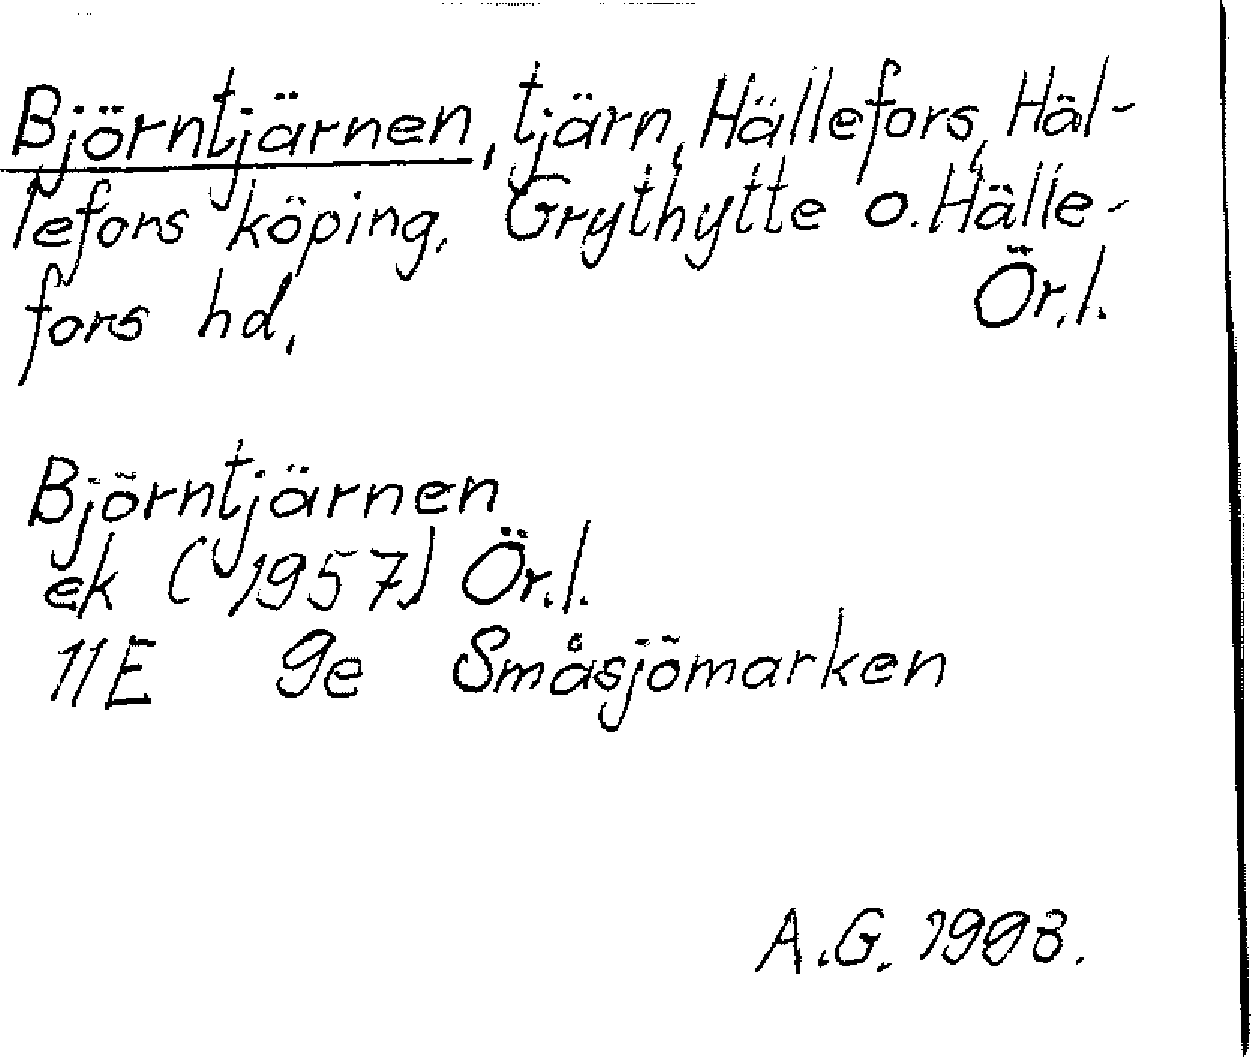 Björntjärnen, tjärn, Hällefors, Häl-
lefors köping, Grythytte o. Hälle-
fors hd, Ör.l.
Björntjärnen
ek (1957) Ör.l.
11E 9e Småsjömarken
A.G. 1993.